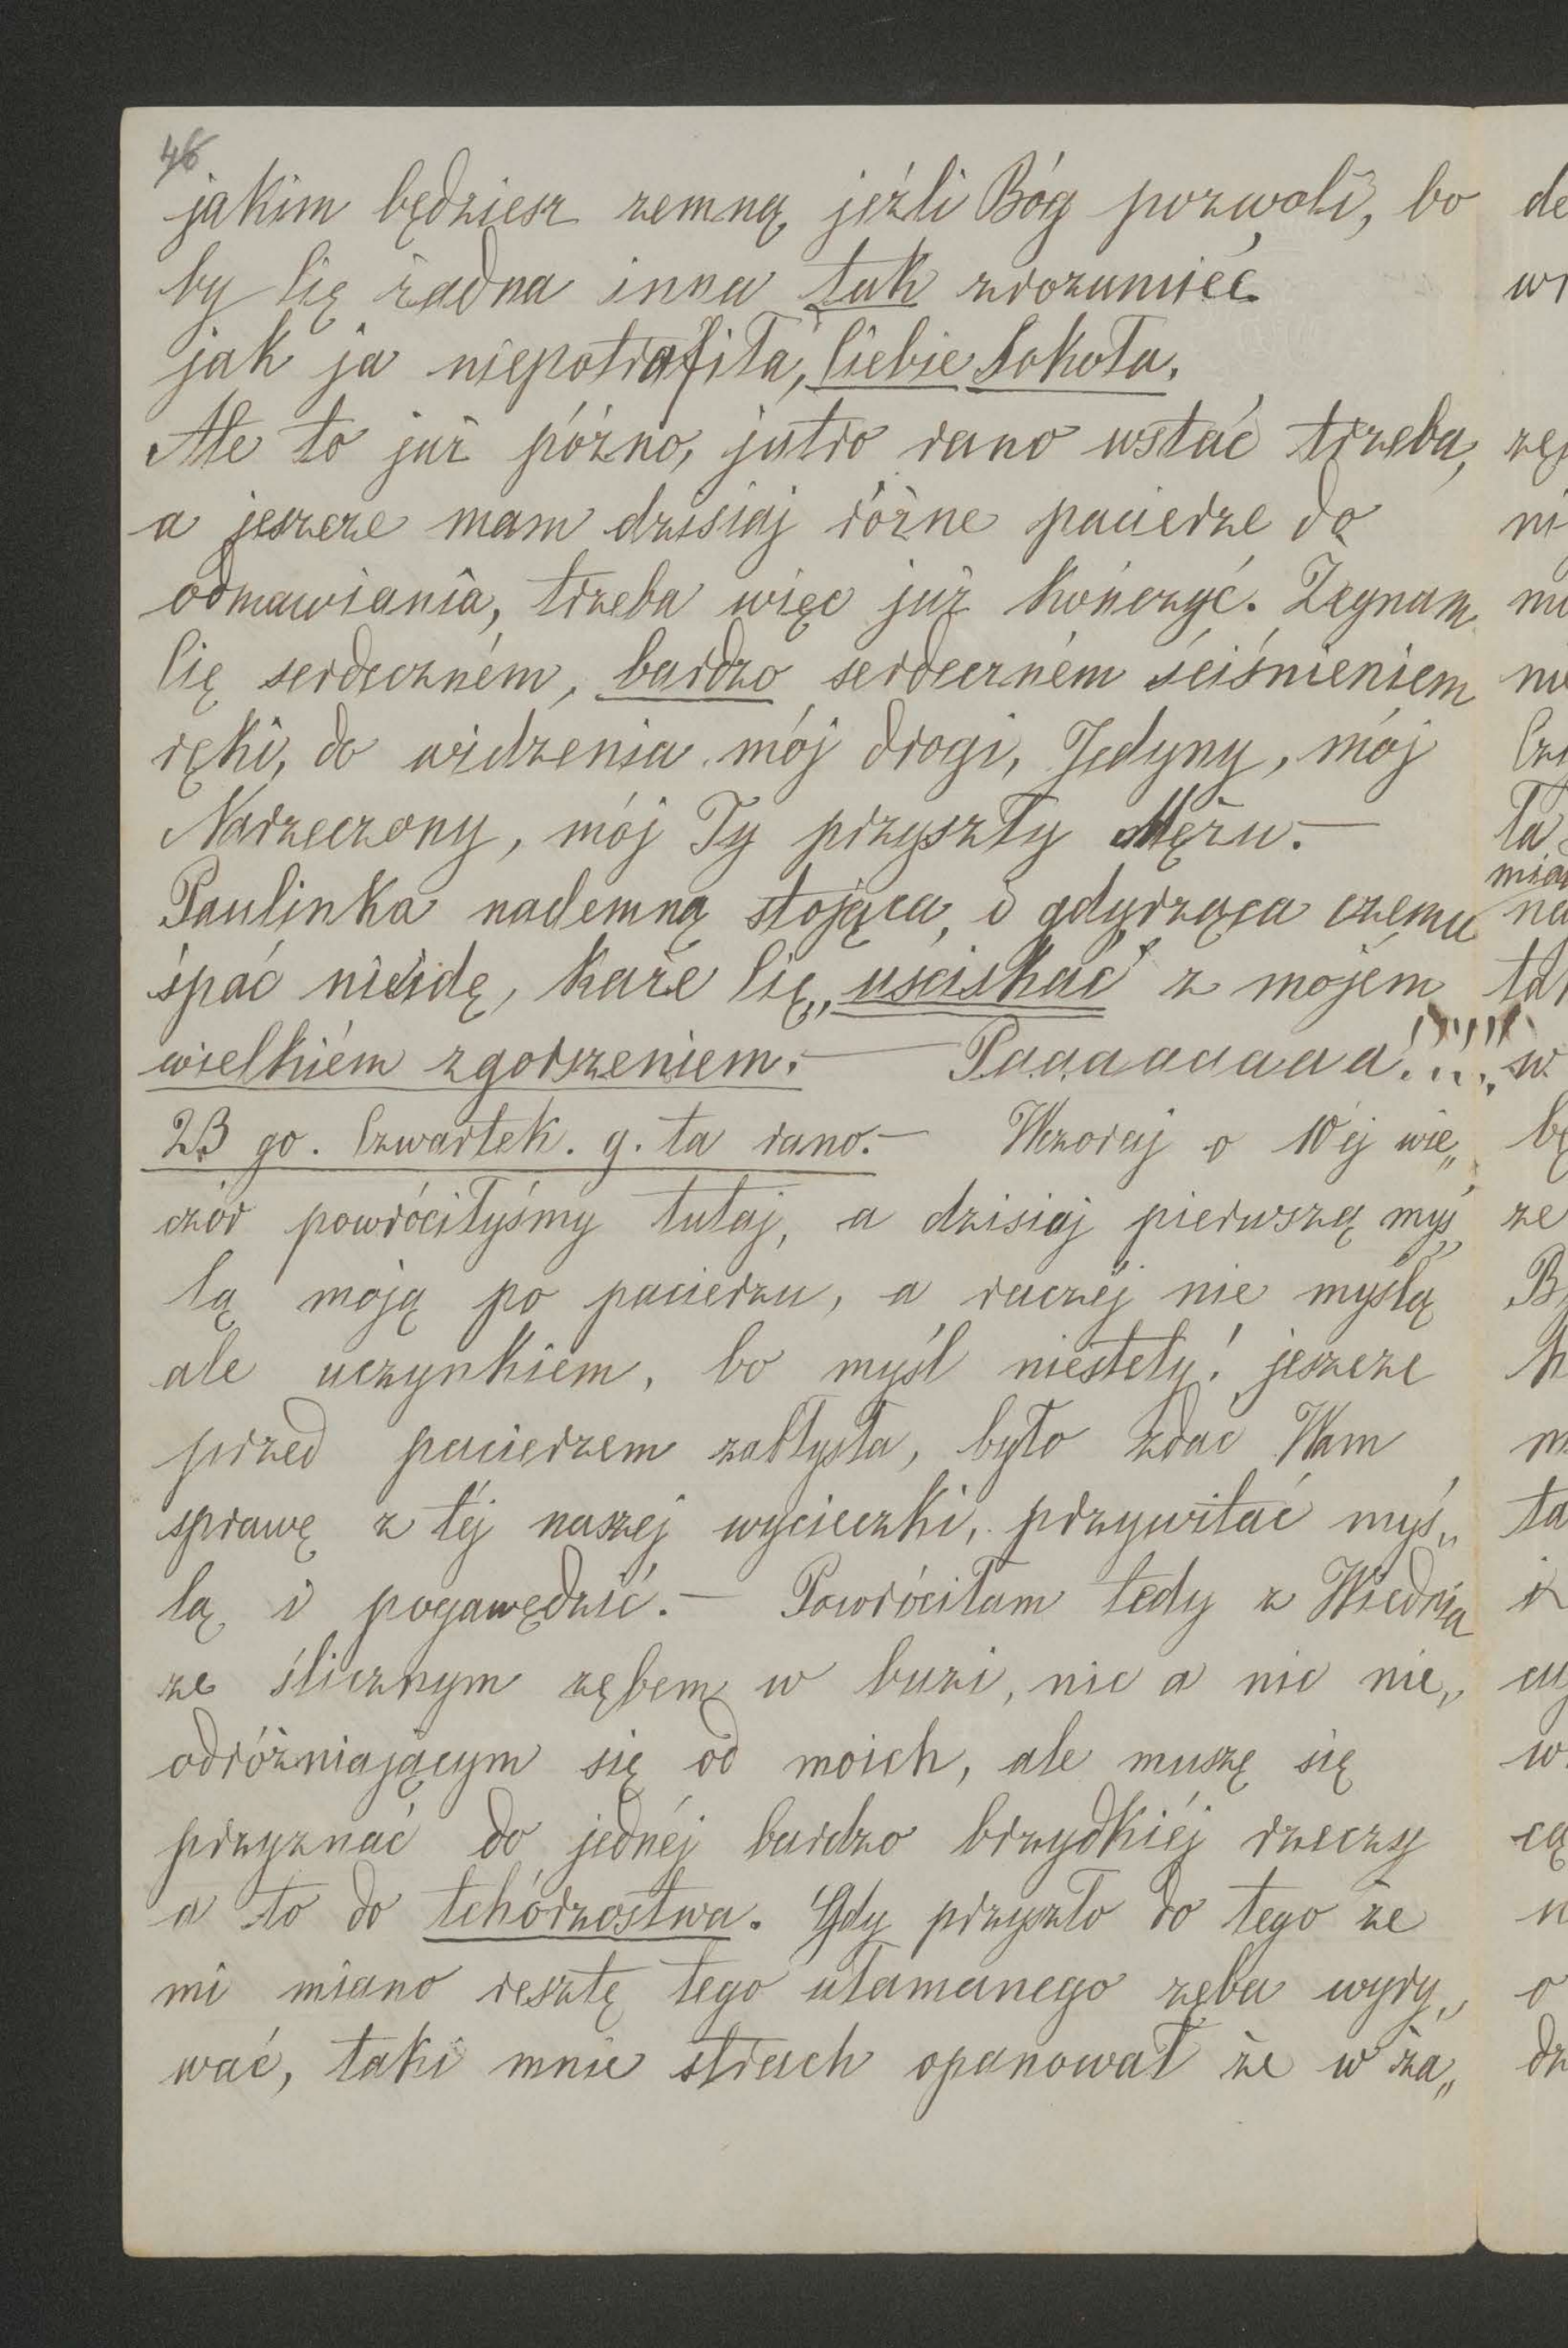 46
jakim będziesz zemną, jeźli Bóg pozwoli, bo
by Cię żadna inna tak zrozumieć
jak ja niepotrafiła, Ciebie Sokoła.
Ale to już późno, jutro rano wstać trzeba,
a jeszcze mam dzisiaj różne pacierze do
odmawiania, trzeba więc już kończyć. Żegnam
Cię serdeczném, bardzo serdeczném ściśnieniem
ręki, do widzenia mój drogi, Jedyny, mój
Narzeczony, mój Ty przyszły Mężu.—
Paulinka nademną stojąca, i gdyrząca czemu
spać nieidę, każe Cię „uściskać" z mojém
wielkiém zgorszeniem.— Paaaaaaaaa!!!!!
23 go. Czwartek. g. ta rano.— Wczoraj o 10éj wie„
czór powróciłyśmy tutaj, a dzisiaj pierwszą myś„
lą moją po pacierzu, a raczéj nie myślą
ale uczynkiem, bo myśl niestety! jeszcze
przed pacierzem zabłysła, było zdać Wam
sprawę z téj naszej wycieczki, przywitać myś„
lą i pogawędzić.— Powróciłam tedy z Wiednia
ze ślicznym zębem w buzi, nic a nic nie„
odróżniającym się od moich, ale muszę się
przyznać do jednéj bardzo brzydkiéj rzeczy
a to do tchórzostwa. Gdy przyszło do tego że
mi miano resztę tego ułamanego zęba wyry„
wać, taki mnie strach opanował że w ża„